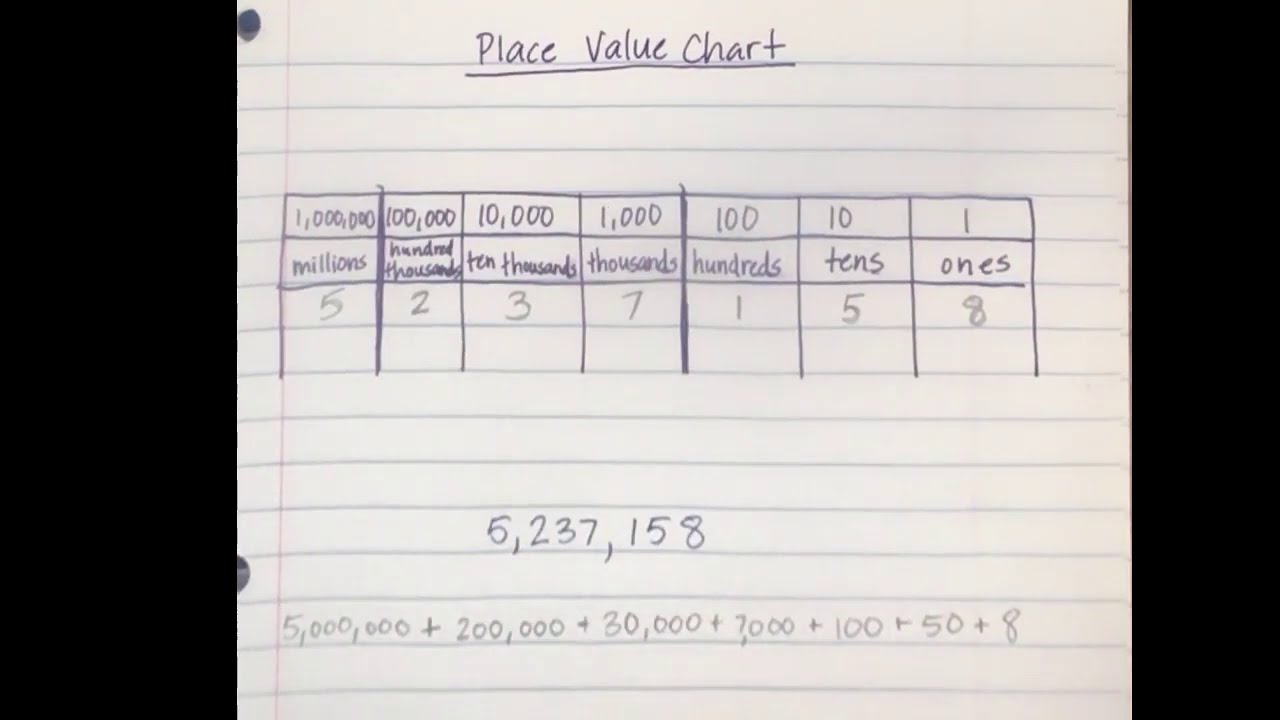 Place Value Chart
1,000,000 100,000 10,000 1,000 100 10 1
millions hundred thousands ten thousands thousands hundreds tens ones
5 2 3 7 1 5 8
5,237,158
5,000,000 + 200,000 + 30,000 + 7,000 + 100 + 50 + 8